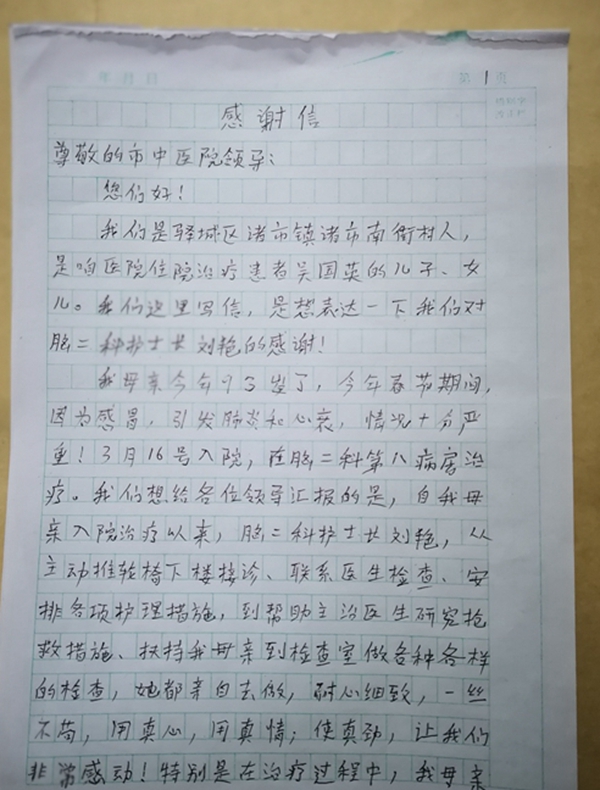 年 月 日 第 1 页
感谢信
尊敬的市中医院领导:
您们好!
我们是驿城区诸市镇诸市南街村人,
是咱医院住院治疗患者吴国英的儿子、女
儿。我们这里写信,是想表达一下我们对
脑二科护士长刘艳的感谢!
我母亲今年93岁了,今年春节期间,
因为感冒,引发肺炎和心衰,情况十分严
重!3月16号入院,在脑二科第八病房治
疗。我们想给各位领导汇报的是,自我母
亲入院治疗以来,脑二科护士长刘艳,从
主动推轮椅下楼接诊、联系医生检查、安
排各项护理措施,到帮助主治医生研究抢
救措施、扶持我母亲到检查室做各种各样
的检查,她都亲自去做,耐心细致,一丝
不苟,用真心,用真情;使真劲,让我们
非常感动!特别是在治疗过程中,我母亲